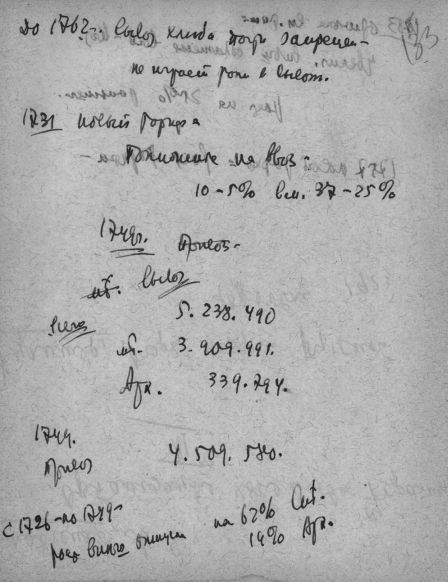 До 1762-. вывоз хлеба почти запрещен-
не играет роли в вывоз.
1731 новый тариф
Понижение на ввоз-
10-5% вм. 37-25%
1749г. привоз-
вывоз
всего 5.238.490
пб. 3.909.991.
Арх. 339.794.
1749.
привоз 4.509.580.
С 1726-по 1749-
рост на 62% Спб.
14% Арх.
133